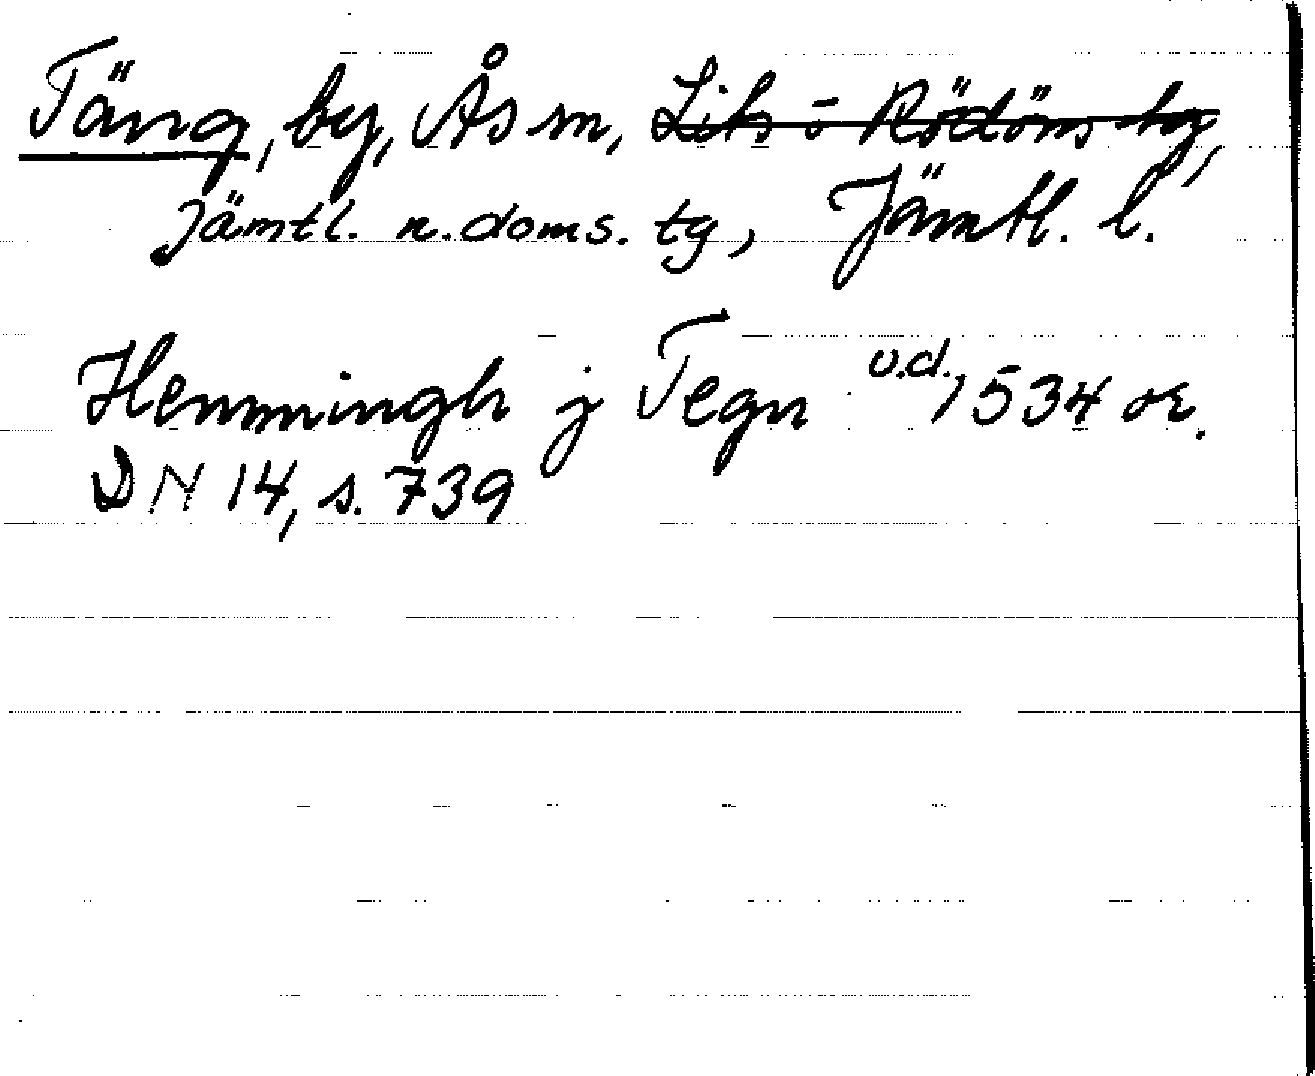 Täng, by, Ås sn, Lits o Rödöns tg,
Jämtl. n. doms. tg, Jämtl. l.
Hemmingh j Tegn u.d. 1534 or.
DN 14, s. 739